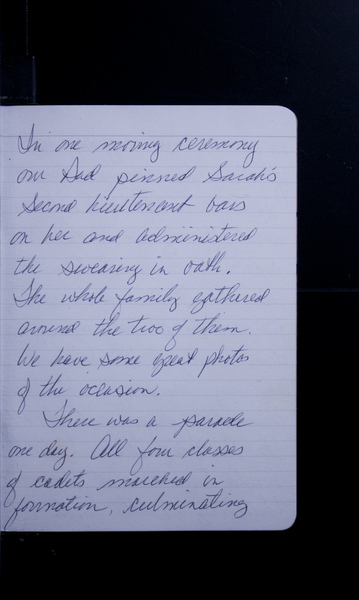 In one moving ceremony
our Dad pinned Sarah's
Second Lieutenant bars
on her and administered
the swearing in oath.
The whole family gathered
around the two of them.
We have some great photos
of the occasion.
There was a parade
one day. All four classes
of cadets marched in
formation, culminating